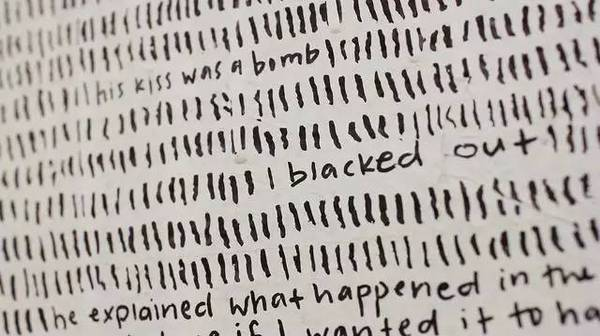 his kiss was a bomb
I blacked out
he explained what happened in the
if I wanted it to ha